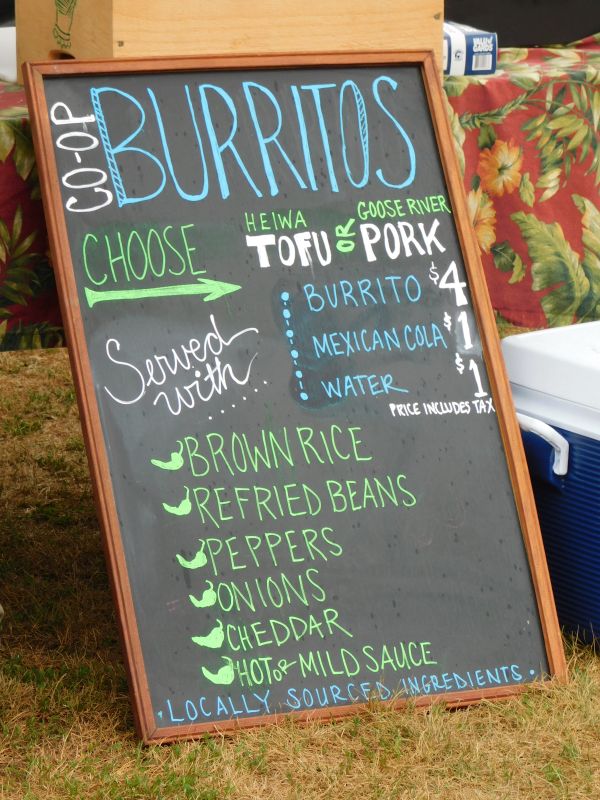 CO-OP BURRITOS
CHOOSE
HEIWA TOFU OR GOOSE RIVER PORK
BURRITO $4
MEXICAN COLA $1
WATER $1
PRICE INCLUDES TAX
Served
with......
BROWN RICE
REFRIED BEANS
PEPPERS
ONIONS
CHEDDAR
HOT or MILD SAUCE
LOCALLY SOURCED INGREDIENTS
VALU GARDS